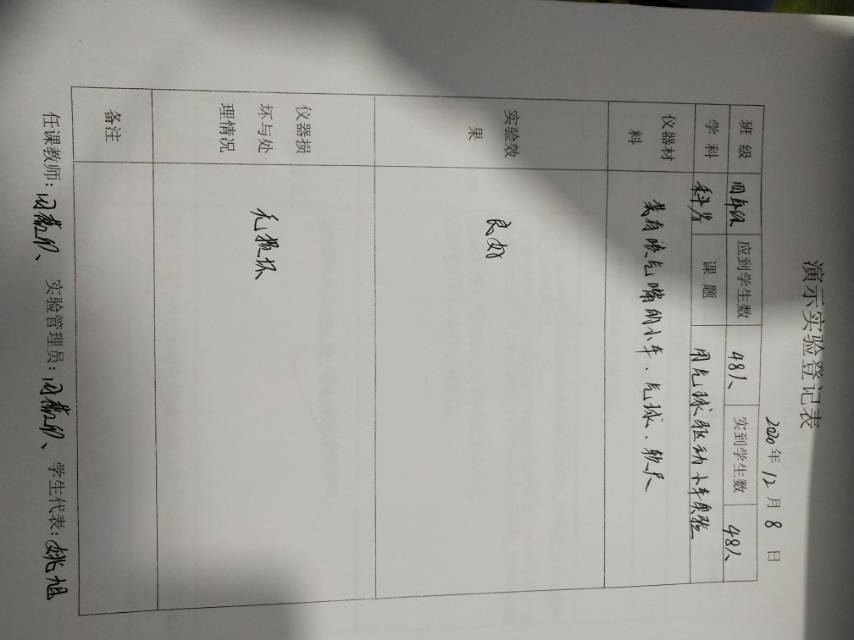 演示实验登记表
2020年 12月 8日
班级 四年级 应到学生数 48人 实到学生数 48人
学科 科学 课题 用气球驱动小车实验
仪器材
料
装有吹气嘴的小车、气球、软尺
实验效
果
良好
仪器损
坏与处
理情况
无损坏
备注
任课教师: 实验管理员: 学生代表:姚旭